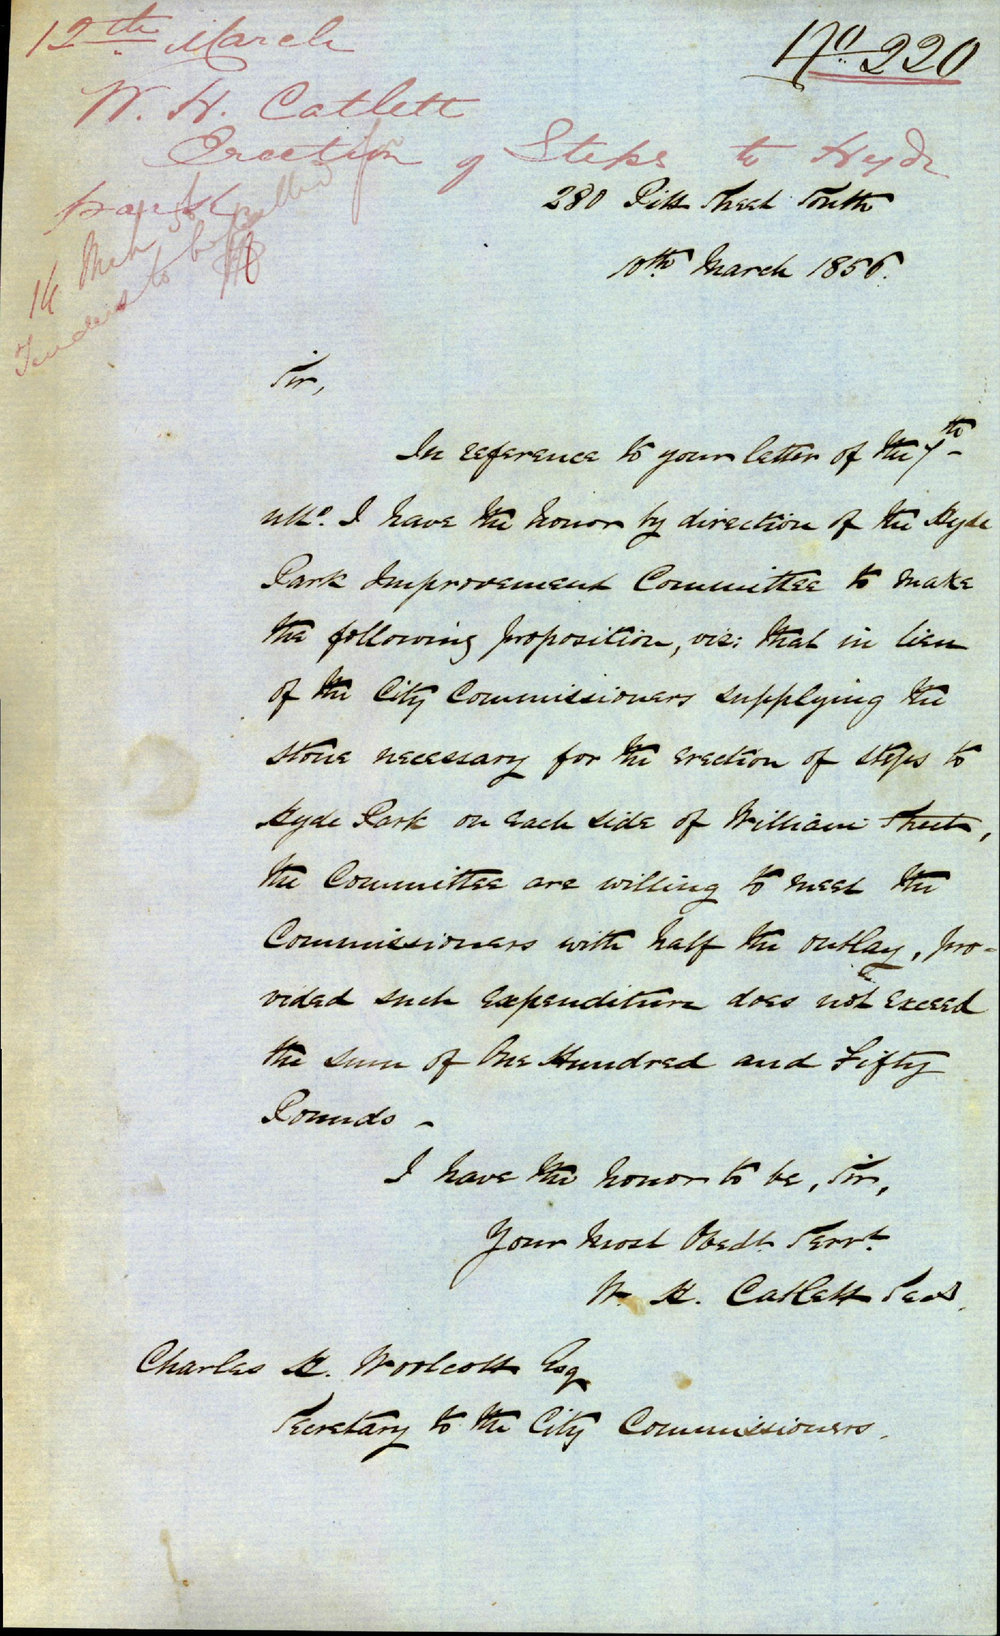 12th March
No. 220
W. H. Catlett
Erection of Steps to Hyde
park
14 Mch 56
Tenders to be called for
280 Pitt Street South
10th March 1856.
Sir,
In reference to your letter of the 7th
ulto. I have the honor by direction of the Hyde
Park Improvement Committee to make
the following proposition, viz: that in lieu
of the City Commissioners supplying the
stone necessary for the erection of steps to
Hyde Park on each side of William Street,
the Committee are willing to meet the
Commissioners with half the outlay, pro-
vided such expenditure does not exceed
the sum of One Hundred and Fifty
Pounds -
I have the honor to be, Sir,
Your Most Obedt. Servt.
W. H. Catlett Secy.
Charles H. Woolcott Esq
Secretary to the City Commissioners.